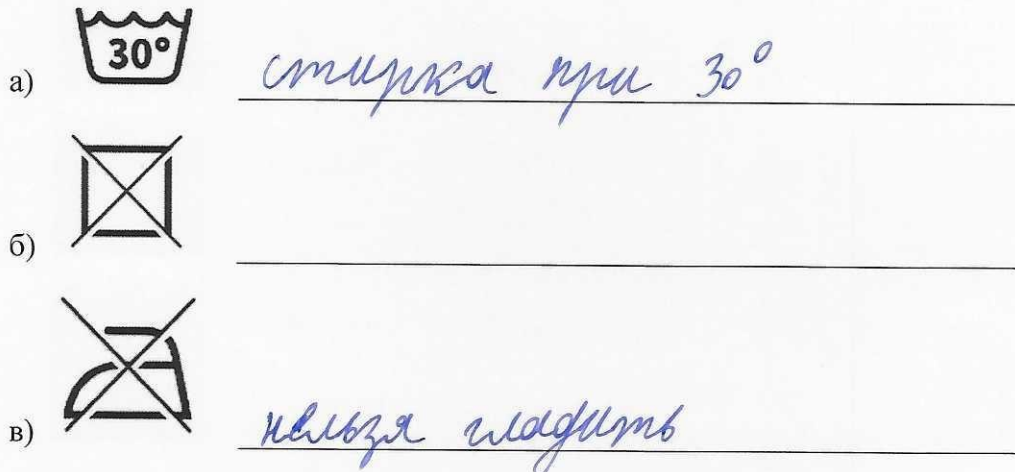 а) 30° стирка при 30°
б)
в) нельзя гладить